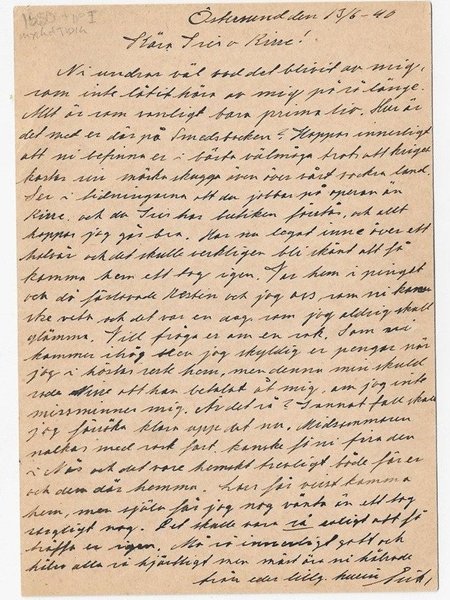 Östersund den 13/6 - 40
Kära Siv o Kirre!
Ni undrar väl vad det blivit av mig,
som inte låtit höra av mig på så länge.
Allt är som vanligt bara prima liv. Hur är
det med er där på Smedsbacken? Hoppas innerligt
att ni befinner er i bästa välmåga trots att kriget
kastar sin mörka skugga även över vårt vackra land.
Ser i tidningarna att du jobbar på operan än
Kirre, och du Siv har butiken förstås, och allt
hoppas jag går bra. Har nu legat inne över ett
halvår och det skulle verkligen bli skönt att få
komma hem ett tag igen. Var hem i pingst
och då förlovade Kestin och jag oss som ni kanske
veta och det var en dag som jag aldrig skall
glömma. Vill fråga er om en sak. Som ni
kommer ihåg blev jag skyldig er pengar när
jag i höstas reste hem, men denna min skuld
sade att han betalat åt mig, om jag inte
missminner mig. Är det så? I annat fall skall
jag försöka klara upp det nu. Midsommaren
nalkas med rask fart, kanske få ni fira den
i Nås och det vore hemskt trevligt både för er
och dem där hemma. Lars får visst komma
hem, men själv får jag nog vänta än ett tag
sorgligt nog. Det skulle vara så roligt att få
träffa er igen. Må så innerligt gott och
hälsa alla så hjärtligt men mest äro ni hälsade
från eder lillg.